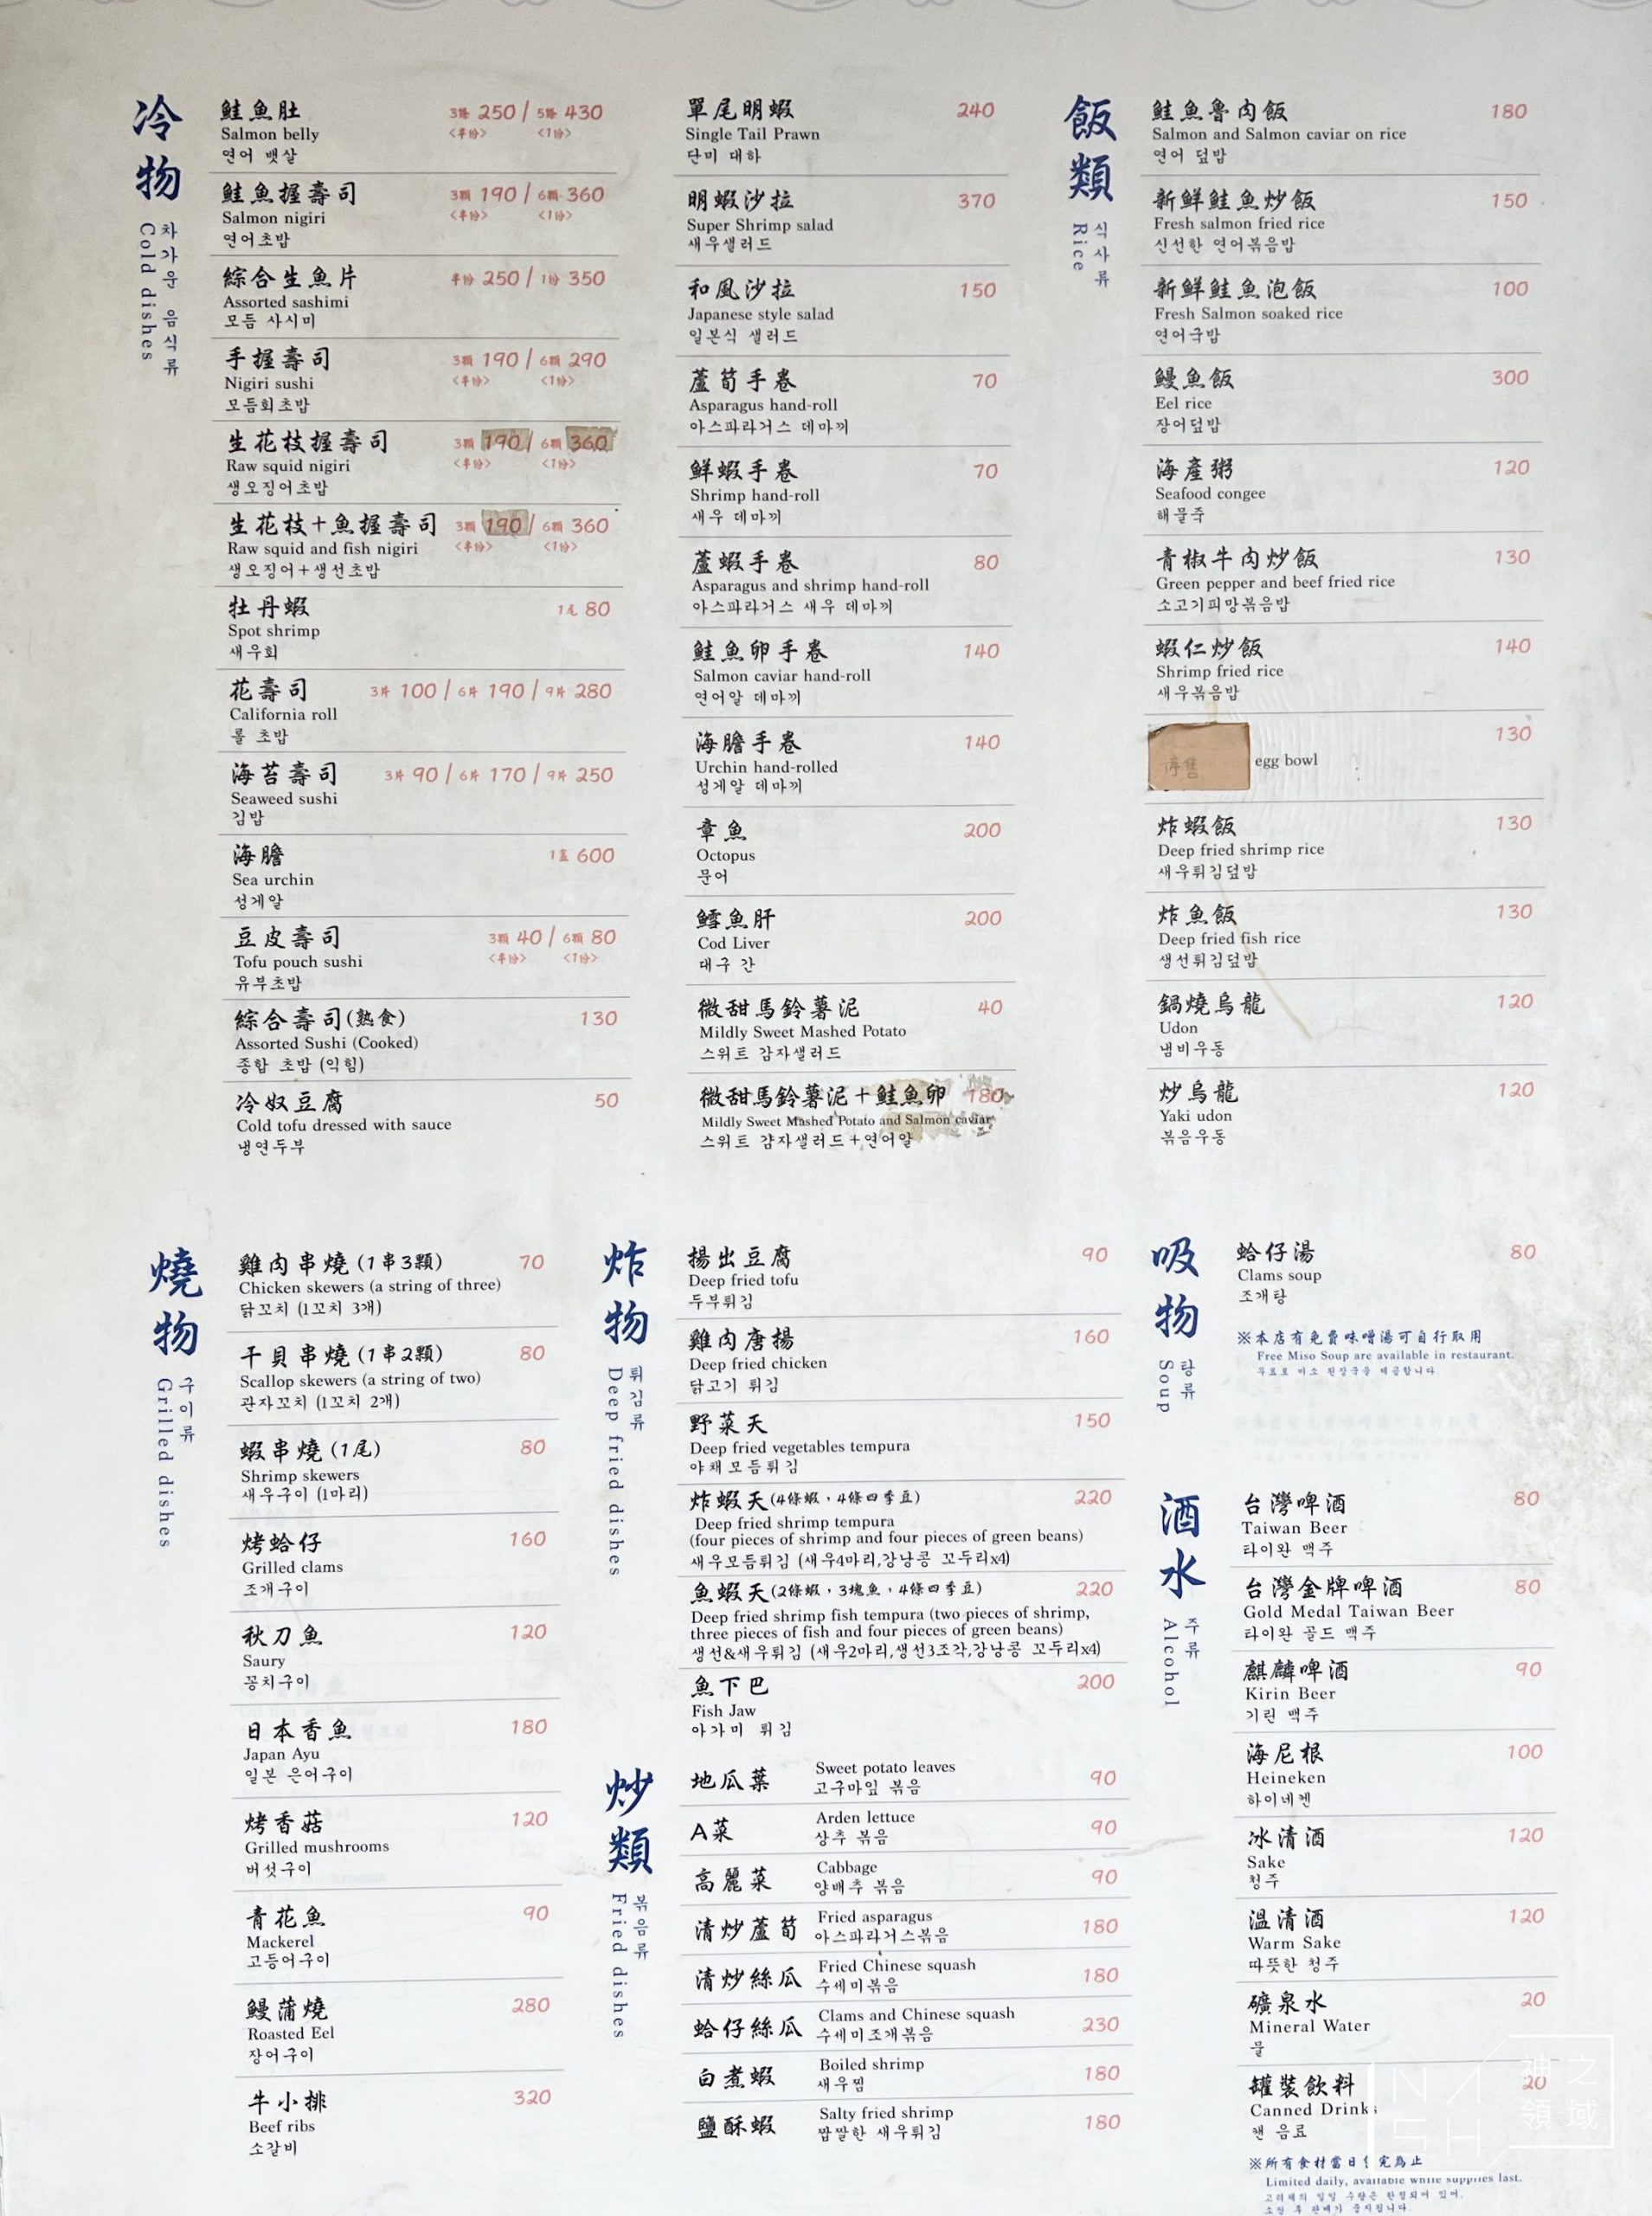 冷物
차가운 음식류
Cold dishes
鮭魚肚 3條 250 / 5條 430
Salmon belly <半份> <1份>
연어 뱃살
鮭魚握壽司 3顆 190 / 6顆 360
Salmon nigiri <半份> <1份>
연어초밥
綜合生魚片 半份 250 / 1份 350
Assorted sashimi
모듬 사시미
手握壽司 3顆 190 / 6顆 290
Nigiri sushi <半份> <1份>
모듬회초밥
生花枝握壽司 3顆 190 / 6顆 360
Raw squid nigiri <半份> <1份>
생오징어초밥
生花枝+魚握壽司 3顆 190 / 6顆 360
Raw squid and fish nigiri <半份> <1份>
생오징어+생선초밥
牡丹蝦 1尾 80
Spot shrimp
새우회
花壽司 3片 100 / 6片 190 / 9片 280
California roll
롤 초밥
海苔壽司 3片 90 / 6片 170 / 9片 250
Seaweed sushi
김밥
海膽 1盒 600
Sea urchin
성게알
豆皮壽司 3顆 40 / 6顆 80
Tofu pouch sushi <半份> <1份>
유부초밥
綜合壽司(熟食) 130
Assorted Sushi (Cooked)
종합 초밥 (익힘)
冷奴豆腐 50
Cold tofu dressed with sauce
냉연두부
單尾明蝦 240
Single Tail Prawn
단미 대하
明蝦沙拉 370
Super Shrimp salad
새우샐러드
和風沙拉 150
Japanese style salad
일본식 샐러드
蘆筍手卷 70
Asparagus hand-roll
아스파라거스 데마끼
鮮蝦手卷 70
Shrimp hand-roll
새우 데마끼
蘆蝦手卷 80
Asparagus and shrimp hand-roll
아스파라거스 새우 데마끼
鮭魚卵手卷 140
Salmon caviar hand-roll
연어알 데마끼
海膽手卷 140
Urchin hand-rolled
성게알 데마끼
章魚 200
Octopus
문어
鱈魚肝 200
Cod Liver
대구 간
微甜馬鈴薯泥 40
Mildly Sweet Mashed Potato
스위트 감자샐러드
微甜馬鈴薯泥+鮭魚卵 180
Mildly Sweet Mashed Potato and Salmon caviar
스위트 감자샐러드+연어알
飯類
식사류
Rice
鮭魚魯肉飯 180
Salmon and Salmon caviar on rice
연어 덮밥
新鮮鮭魚炒飯 150
Fresh salmon fried rice
신선한 연어볶음밥
新鮮鮭魚泡飯 100
Fresh Salmon soaked rice
연어국밥
鰻魚飯 300
Eel rice
장어덮밥
海產粥 120
Seafood congee
해물죽
青椒牛肉炒飯 130
Green pepper and beef fried rice
소고기피망볶음밥
蝦仁炒飯 140
Shrimp fried rice
새우볶음밥
130
停售 egg bowl
炸蝦飯 130
Deep fried shrimp rice
새우튀김덮밥
炸魚飯 130
Deep fried fish rice
생선튀김덮밥
鍋燒烏龍 120
Udon
냄비우동
炒烏龍 120
Yaki udon
볶음우동
燒物
구이류
Grilled dishes
雞肉串燒 (1串3顆) 70
Chicken skewers (a string of three)
닭꼬치 (1꼬치 3개)
干貝串燒 (1串2顆) 80
Scallop skewers (a string of two)
관자꼬치 (1꼬치 2개)
蝦串燒 (1尾) 80
Shrimp skewers
새우구이 (1마리)
烤蛤仔 160
Grilled clams
조개구이
秋刀魚 120
Saury
꽁치구이
日本香魚 180
Japan Ayu
일본 은어구이
烤香菇 120
Grilled mushrooms
버섯구이
青花魚 90
Mackerel
고등어구이
鰻蒲燒 280
Roasted Eel
장어구이
牛小排 320
Beef ribs
소갈비
炸物
튀김류
Deep fried dishes
揚出豆腐 90
Deep fried tofu
두부튀김
雞肉唐揚 160
Deep fried chicken
닭고기 튀김
野菜天 150
Deep fried vegetables tempura
야채모듬튀김
炸蝦天(4條蝦,4條四季豆) 220
Deep fried shrimp tempura
(four pieces of shrimp and four pieces of green beans)
새우모듬튀김 (새우4마리,강낭콩 꼬두리x4)
魚蝦天(2條蝦,3塊魚,4條四季豆) 220
Deep fried shrimp fish tempura (two pieces of shrimp,
three pieces of fish and four pieces of green beans)
생선&새우튀김 (새우2마리,생선3조각,강낭콩 꼬두리x4)
魚下巴 200
Fish Jaw
아가미 튀김
炒類
볶음류
Fried dishes
地瓜葉 Sweet potato leaves 90
고구마잎 볶음
A菜 Arden lettuce 90
상추 볶음
高麗菜 Cabbage 90
양배추 볶음
清炒蘆筍 Fried asparagus 180
아스파라거스볶음
清炒絲瓜 Fried Chinese squash 180
수세미볶음
蛤仔絲瓜 Clams and Chinese squash 230
수세미조개볶음
白煮蝦 Boiled shrimp 180
새우찜
鹽酥蝦 Salty fried shrimp 180
짭짤한 새우튀김
吸物
탕류
Soup
蛤仔湯 80
Clams soup
조개탕
※本店有免費味噌湯可自行取用
Free Miso Soup are available in restaurant.
무료로 미소 된장국을 제공합니다.
酒水
주류
Alcohol
台灣啤酒 80
Taiwan Beer
타이완 맥주
台灣金牌啤酒 80
Gold Medal Taiwan Beer
타이완 골드 맥주
麒麟啤酒 90
Kirin Beer
기린 맥주
海尼根 100
Heineken
하이네켄
冰清酒 120
Sake
청주
溫清酒 120
Warm Sake
따뜻한 청주
礦泉水 20
Mineral Water
물
罐裝飲料 20
Canned Drinks
캔 음료
※所有食材當日 完為止
Limited daily, available while supplies last.
NASH 神之領域